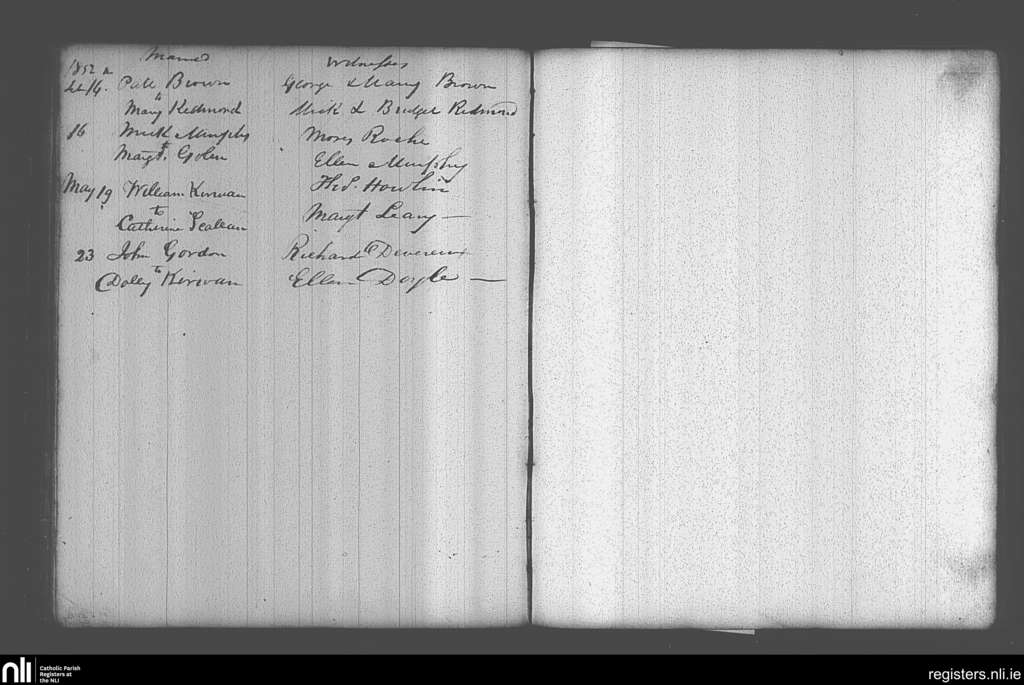 1852 Married Witnesses
Feb 14. Patt Brown George & Mary Brown
to
Mary Redmond Mick & Bridget Redmond
16 Mick Murphy Moses Roche
to
Margt. Golen Ellen Murphy
May 19 William Kirwan Thos. Howlin
to
Catherine Margt Leary —
23 John Gordon Richard Devereux
to
Dolly Kirwan Ellen Doyle —
nli Catholic Parish
Registers at
the NLI
registers.nli.ie